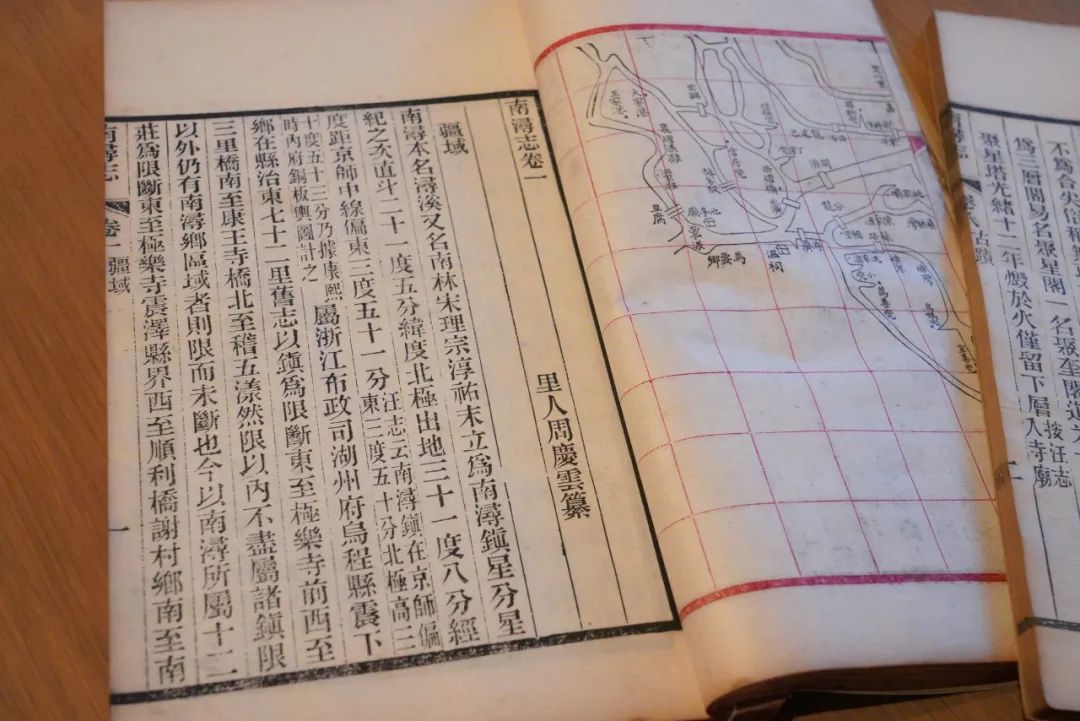 不爲合尖俗稱
爲三層閣易名聚星閣一名聚奎閣
按汪志
聚星塔光緒十一年燬於火僅留下層入寺廟
卷八 古蹟
馬要鄉
溫祠
豆腐
南潯志卷一
里人周慶雲纂
疆域
南潯本名潯溪又名南林宋理宗淳祐末立爲南潯鎭星分星
紀之次直斗二十一度五分緯度北極出地三十一度八分經
度距京師中線偏東三度五十一分汪志云南潯鎭在京師偏東三度五十分北極高三
十度五十三分乃據康熙時內府銅板輿圖計之屬浙江布政司湖州府烏程縣震下
鄉在縣治東七十二里舊志以鎭爲限斷東至極樂寺前西至
三里橋南至康王寺橋北至稽五漾然限以內不盡屬諸鎭限
以外仍有南潯鄉區域者則限而未斷也今以南潯所屬十二
莊爲限斷東至極樂寺震澤縣界西至順利橋謝村鄉南至南
南潯志 卷一 疆域 一